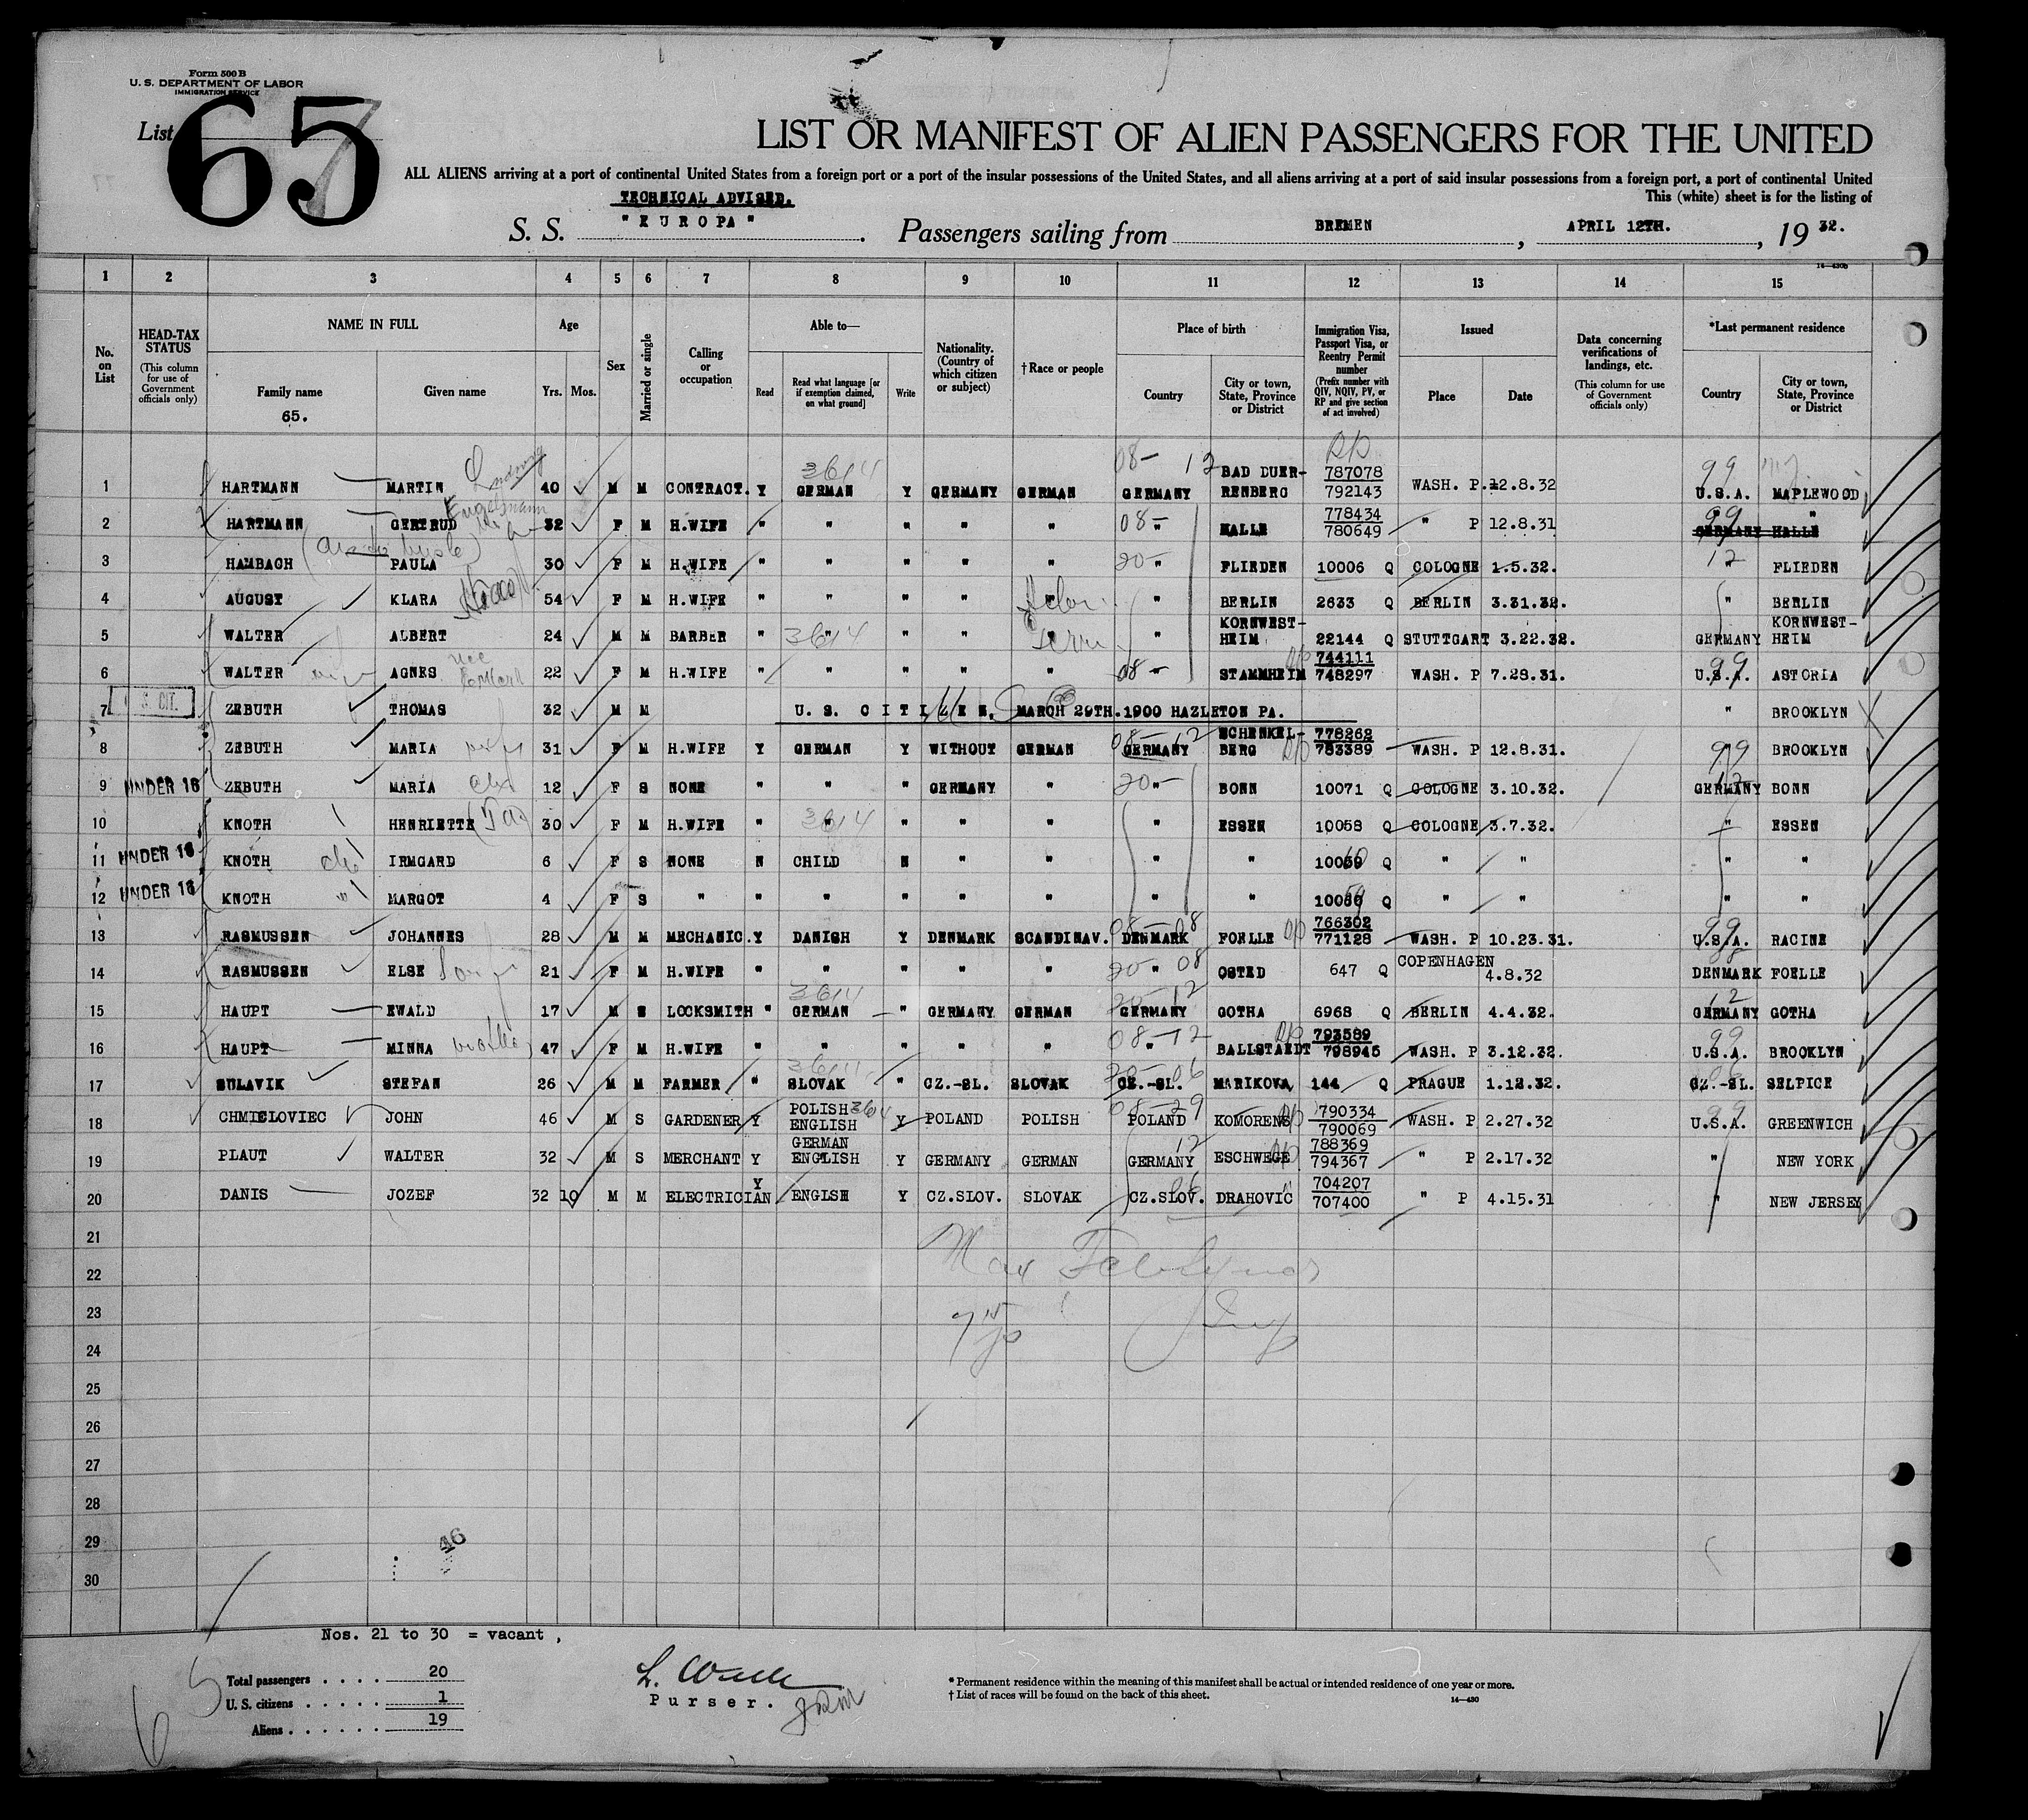 Form 500 B
U. S. DEPARTMENT OF LABOR
IMMIGRATION SERVICE
List 65
LIST OR MANIFEST OF ALIEN PASSENGERS FOR THE UNITED
ALL ALIENS arriving at a port of continental United States from a foreign port or a port of the insular possessions of the United States, and all aliens arriving at a port of said insular possessions from a foreign port, a port of continental United
TECHNICAL ADVISED. This (white) sheet is for the listing of
S. S. "EUROPA". Passengers sailing from BREMEN, APRIL 12TH., 19 32.
14—430B
1 2 3 4 5 6 7 8 9 10 11 12 13 14 15
No. on List
HEAD-TAX STATUS (This column for use of Government officials only)
NAME IN FULL
Family name
65.
Given name
Age
Yrs. Mos.
Sex
Married or single
Calling or occupation
Able to—
Read
Read what language [or if exemption claimed, on what ground]
Write
Nationality. (Country of which citizen or subject)
† Race or people
Place of birth
Country
City or town, State, Province or District
Immigration Visa, Passport Visa, or Reentry Permit number (Prefix number with QIV, NQIV, PV, or RP and give section of act involved)
Issued
Place
Date
Data concerning verifications of landings, etc. (This column for use of Government officials only)
*Last permanent residence
Country
City or town, State, Province or District
1 HARTMANN MARTIN 40 M M CONTRACT. Y GERMAN Y GERMANY GERMAN GERMANY BAD DUER-RENBERG 787078 792143 WASH. P. 12.8.32 U.S.A. MAPLEWOOD
2 HARTMANN GERTRUD 32 F M H.WIFE " " " " " " HALLE 778434 780649 " P 12.8.31 " " GERMANY HALLE
3 HAMBACH PAULA 30 F M H.WIFE " " " " " " FLIEDEN 10006 Q COLOGNE 1.5.32. " FLIEDEN
4 AUGUST KLARA 54 F M H.WIFE " " " " " BERLIN 2633 Q BERLIN 3.31.32. " BERLIN
5 WALTER ALBERT 24 M M BARBER " " " " " " KORNWEST-HEIM 22144 Q STUTTGART 3.22.32. GERMANY KORNWEST-HEIM
6 WALTER AGNES 22 F M H.WIFE " " " " " " STAMMHEIM 744111 748297 WASH. P 7.28.31. U.S.A. ASTORIA
7 ZEBUTH THOMAS 32 M M U. S. CITIZEN, MARCH 29TH.1900 HAZLETON PA. " BROOKLYN
8 ZEBUTH MARIA 31 F M H.WIFE Y GERMAN Y WITHOUT GERMAN GERMANY SCHENKEL-BERG 778262 783389 WASH. P 12.8.31. BROOKLYN
9 UNDER 16 ZEBUTH MARIA 12 F S NONE " " " GERMANY " " BONN 10071 Q COLOGNE 3.10.32. GERMANY BONN
10 KNOTH HENRIETTE 30 F M H.WIFE " " " " " " ESSEN 10058 Q COLOGNE 3.7.32. " ESSEN
11 UNDER 16 KNOTH IRMGARD 6 F S NONE N CHILD N " " " " Q " " " "
12 UNDER 16 KNOTH MARGOT 4 F S " " " " " " " " Q " " " "
13 RASMUSSEN JOHANNES 28 M M MECHANIC. Y DANISH Y DENMARK SCANDINAV. DENMARK FOELLE 766302 771128 WASH. P 10.23.31. U.S.A. RACINE
14 RASMUSSEN ELSE 21 F M H.WIFE " " " " " " OSTED 647 Q COPENHAGEN 4.8.32 DENMARK FOELLE
15 HAUPT EWALD 17 M S LOCKSMITH " GERMAN " GERMANY GERMAN GERMANY GOTHA 6968 Q BERLIN 4.4.32. GERMANY GOTHA
16 HAUPT MINNA 47 F M H.WIFE " " " " " " BALLSTAEDT 793589 798945 WASH. P 3.12.32. U.S.A. BROOKLYN
17 SULAVIK STEFAN 26 M M FARMER " SLOVAK " CZ.-SL. SLOVAK CZ.-SL. MARIKOVA 144 Q PRAGUE 1.12.32. CZ.-SL. SELPICE
18 CHMIELOVIEC JOHN 46 M S GARDENER Y POLISH ENGLISH Y POLAND POLISH POLAND KOMORENS 790334 790069 WASH. P 2.27.32 U.S.A. GREENWICH
19 PLAUT WALTER 32 M S MERCHANT Y GERMAN ENGLISH Y GERMANY GERMAN GERMANY ESCHWEGE 788369 794367 " P 2.17.32 " NEW YORK
20 DANIS JOZEF 32 10 M M ELECTRICIAN Y ENGLSH Y CZ.SLOV. SLOVAK CZ.SLOV. DRAHOVIC 704207 707400 " P 4.15.31 " NEW JERSEY
21
22
23
24
25
26
27
28
29
30
46
Nos. 21 to 30 = vacant,
Total passengers . . . . 20
U. S. citizens . . . . . 1
Aliens . . . . . . 19
Purser.
* Permanent residence within the meaning of this manifest shall be actual or intended residence of one year or more.
† List of races will be found on the back of this sheet.
14—430